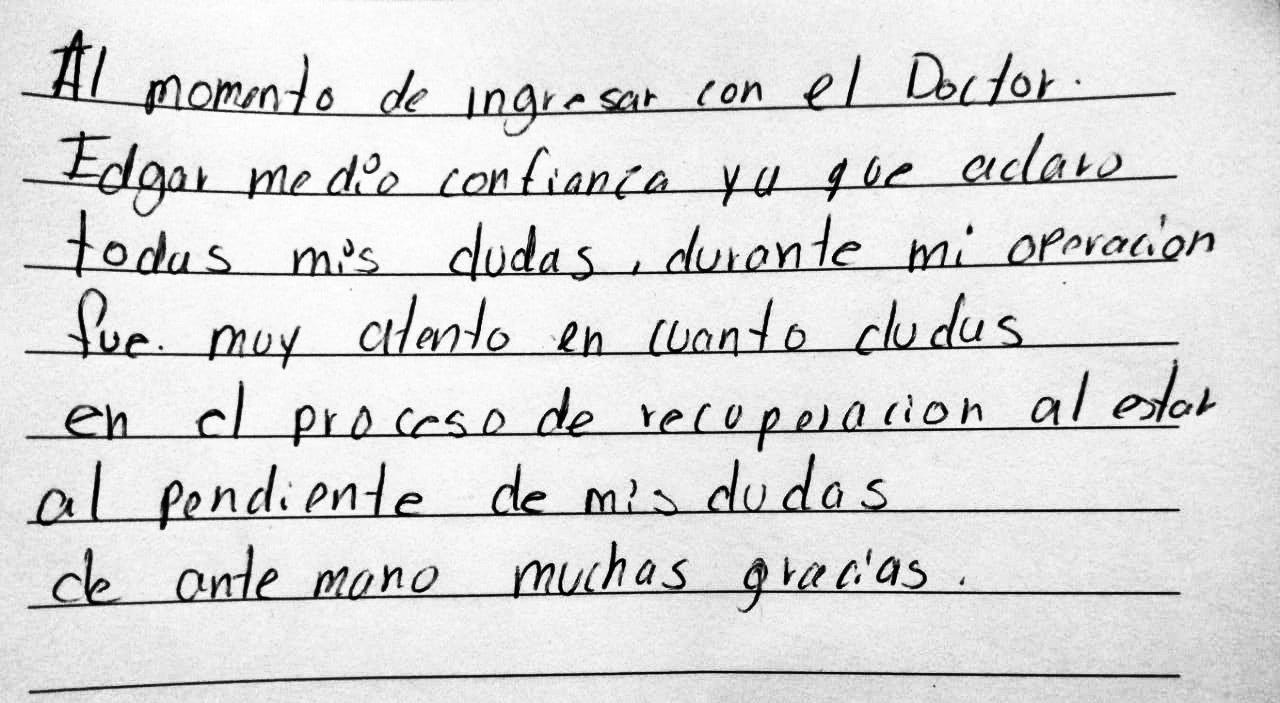 Al momento de ingresar con el Doctor.
Edgar me dio confianca ya que aclaro
todas mis dudas, durante mi operacion
fue. muy atento en cuanto dudas
en el proceso de recuperacion al estar
al pendiente de mis dudas
de ante mano muchas gracias.